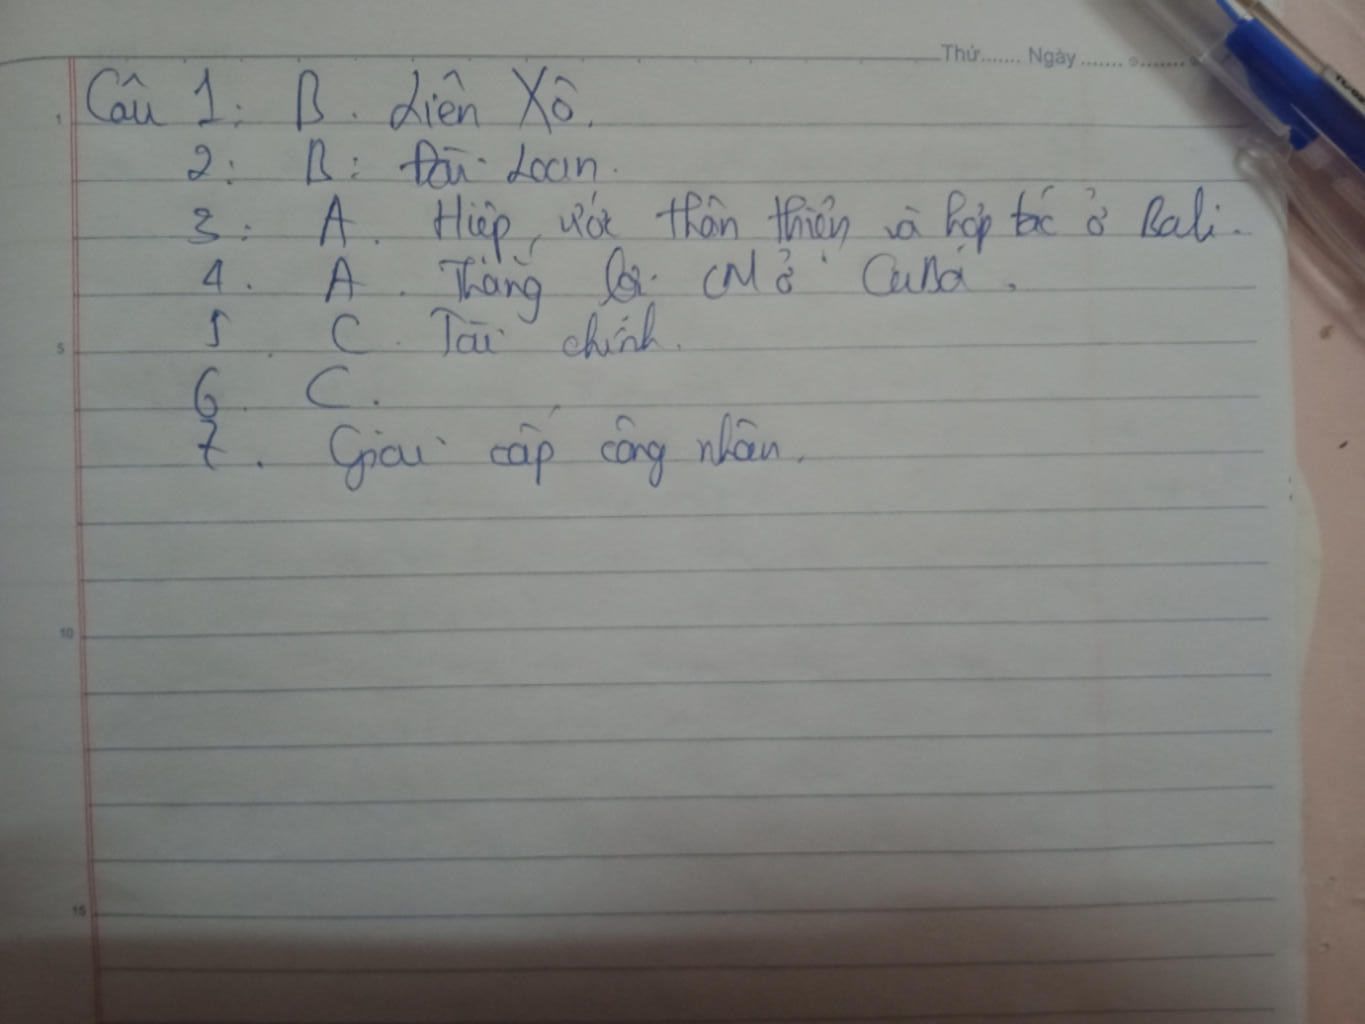 Thứ....... Ngày ....... 9.......
Câu 1: B. Liên Xô.
2: B: Đài Loan.
3: A. Hiệp ước thân thiện và hợp tác ở Bali.
4. A. Thắng lợi CM ở CuBa.
5 C. Tài chính.
6. C.
7. Giai cấp công nhân.
1
5
10
15